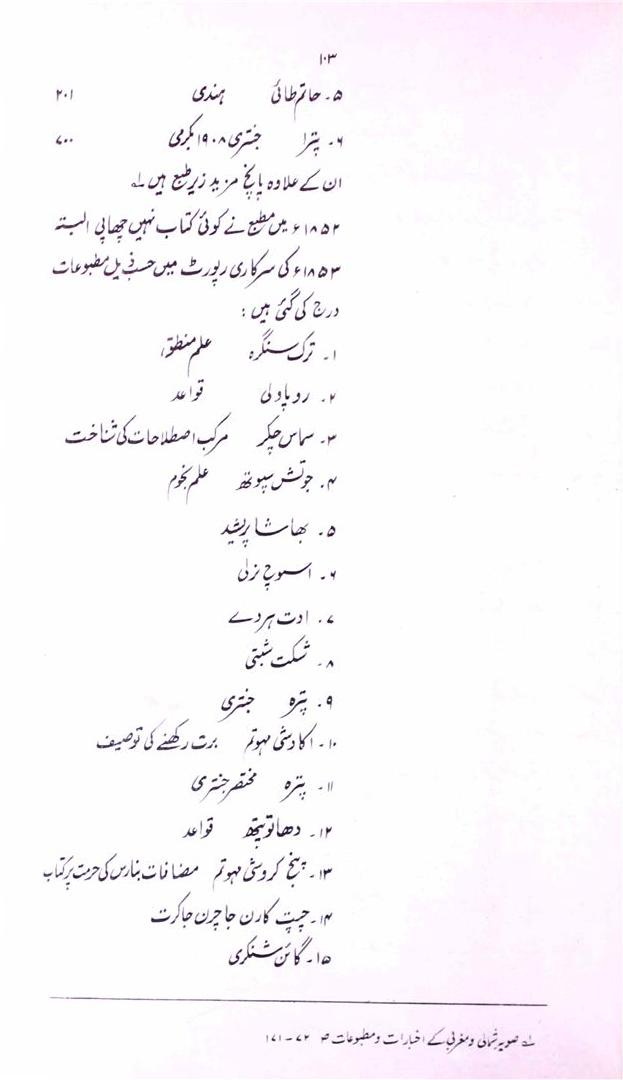 ۱۰۳
۵۔ حاتم طائی ہندی ۲۰۱
۶۔ پترا جنتری ۱۹۰۸ بکرمی ۷۰۰
ان کے علاوہ پانچ مزید زیر طبع ہیں لہ
۱۸۵۲ء میں مطبع نے کوئی کتاب نہیں چھاپی البتہ
۱۸۵۳ء کی سرکاری رپورٹ میں حسب ذیل مطبوعات
درج کی گئی ہیں :
۱۔ ترک سنگرہ علم منطق
۲۔ روپاولی قواعد
۳۔ سماس چکر مرکب اصطلاحات کی شناخت
۴۔ جوتش علم نجوم
۵۔ بھاشا پرشید
۶۔ اسوچ نرلی
۷۔ ادت ہردے
۸۔ شکت شبتی
۹۔ پترہ جنتری
۱۰۔ اکادشی مہوتم برت رکھنے کی توصیف
۱۱۔ پترہ مختصر جنتری
۱۲۔ دھاتو پتھ قواعد
۱۳۔ پنچ کروشی مہوتم مضافات بنارس کی حرمت پر کتاب
۱۴۔ چپت کارن جاچرن جاکرت
۱۵۔ گائن شنکری
لہ صوبہ شمالی و مغربی کے اخبارات و مطبوعات ص ۷۲ - ۱۷۱